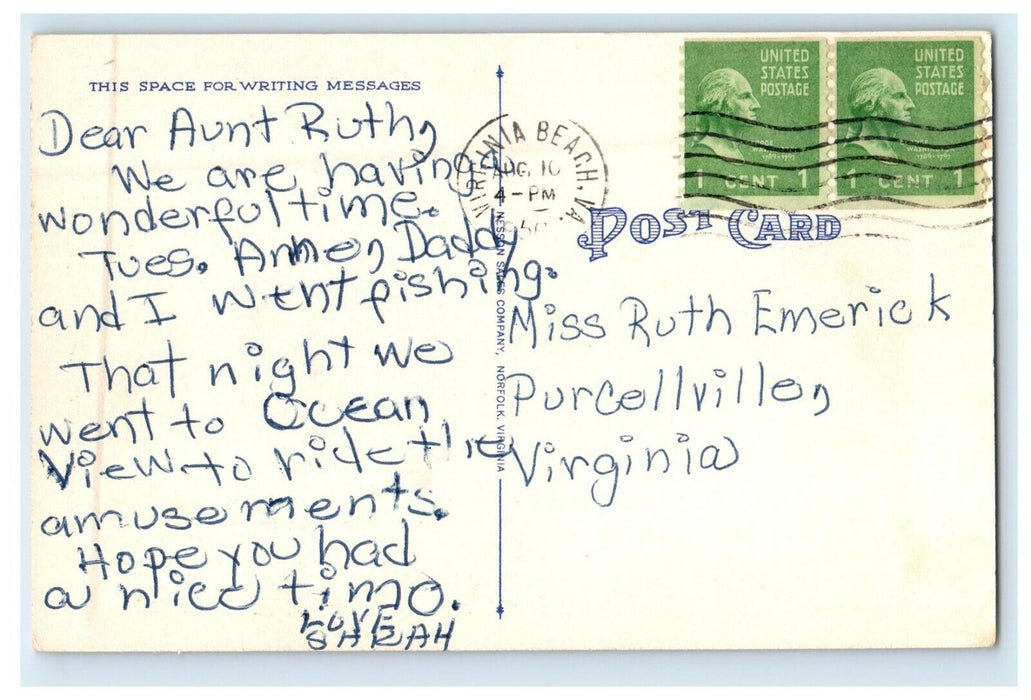 THIS SPACE FOR WRITING MESSAGES
Dear Aunt Ruth,
We are having
wonderful time.
Tues. Anne, Daddy
and I went fishing.
That night we
went to Ocean
View to ride the
amusements.
Hope you had
a nice time.
LOVE
SARAH
VIRGINIA BEACH, VA.
AUG 10
4-PM
UNITED
STATES
POSTAGE
1 CENT 1
UNITED
STATES
POSTAGE
WASHINGTON
1789-1797
1 CENT 1
POST CARD
SALES COMPANY, NORFOLK, VIRGINIA
Miss Ruth Emerick
Purcellville,
Virginia